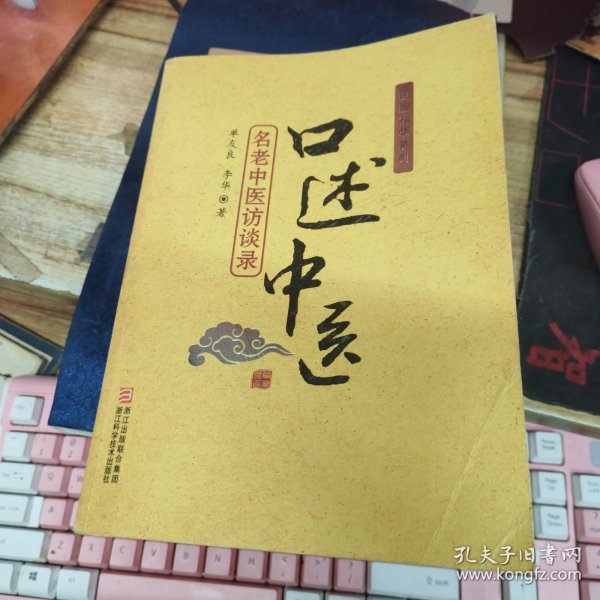 口述中医
名老中医访谈录
单友良 李华 著
浙江出版联合集团
浙江科学技术出版社
智
孔夫子旧书网
www.kongfz.com